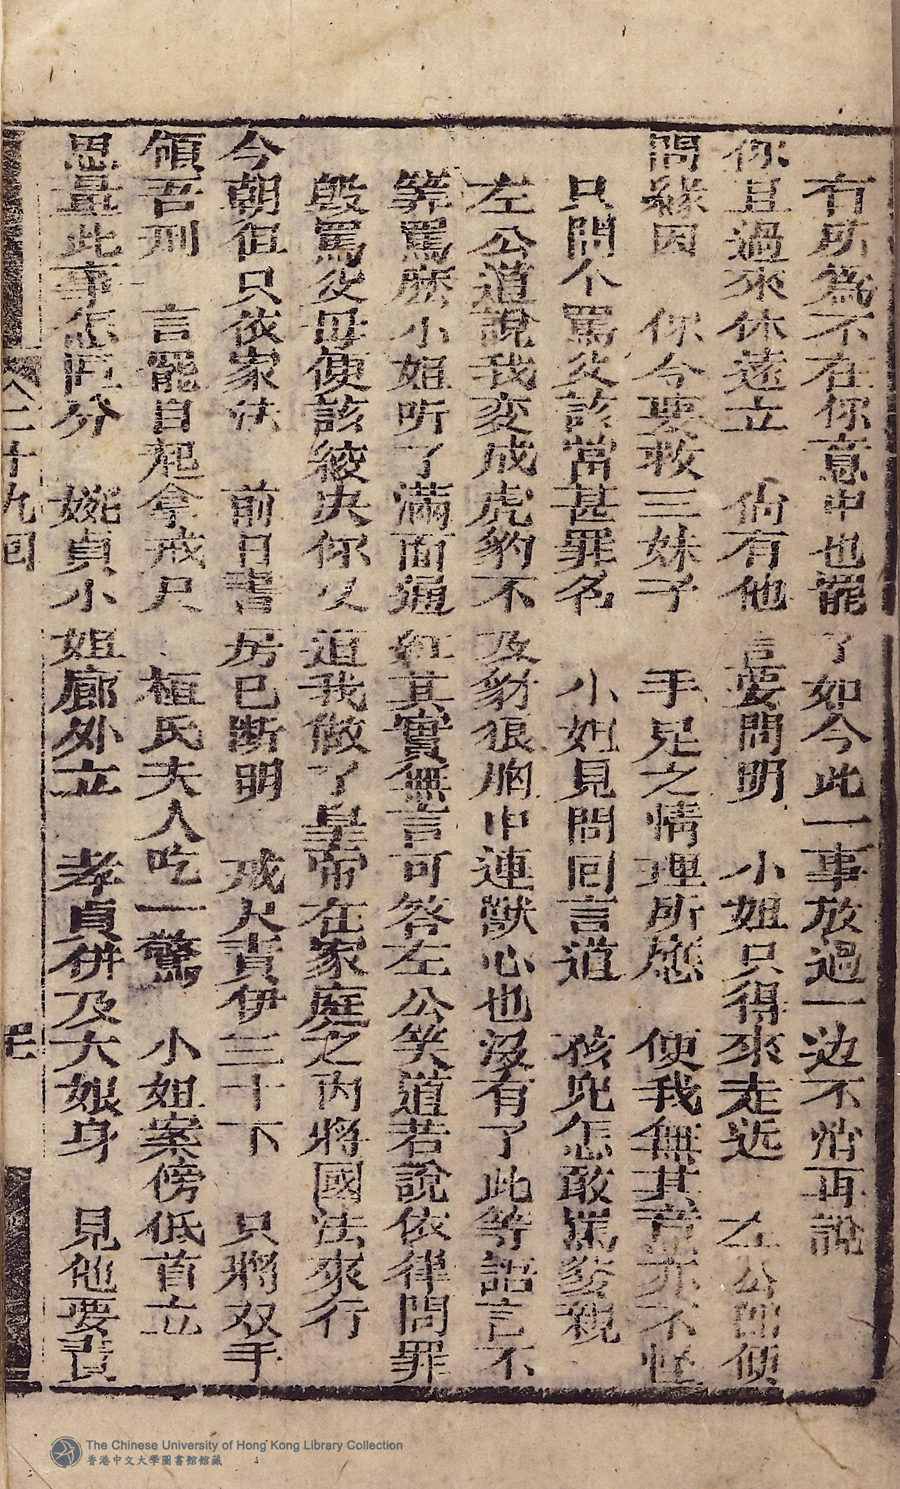 有所為不在你意中也罷了如今此一事放過一边不消再說
你且過來休遠立　倘有他言要問明　小姐只得來走近　左公即便
問緣因　你今要救三妹子　手足之情理所應　便我無其意亦不怪
只問个罵父該當甚罪名　小姐見問回言道　孩兒怎敢罵爹親
左公道說我変成虎豹不及豺狼胸中連獸心也没有了此等語言不
等罵麽小姐听了滿面通紅其實無言可答左公笑道若說依律問罪
毆罵父母便該絞决你又道我做了皇帝在家庭之内將國法來行
今朝但只依家法　前日書房已断明　戒尺責伊三十下　只將双手
領吾刑　言罷自起拿戒尺　桓氏夫人吃一驚　小姐案傍低首立
思量此事怎區分　婉貞小姐廊外立　孝貞併及大娘身　見他要責
二十九回